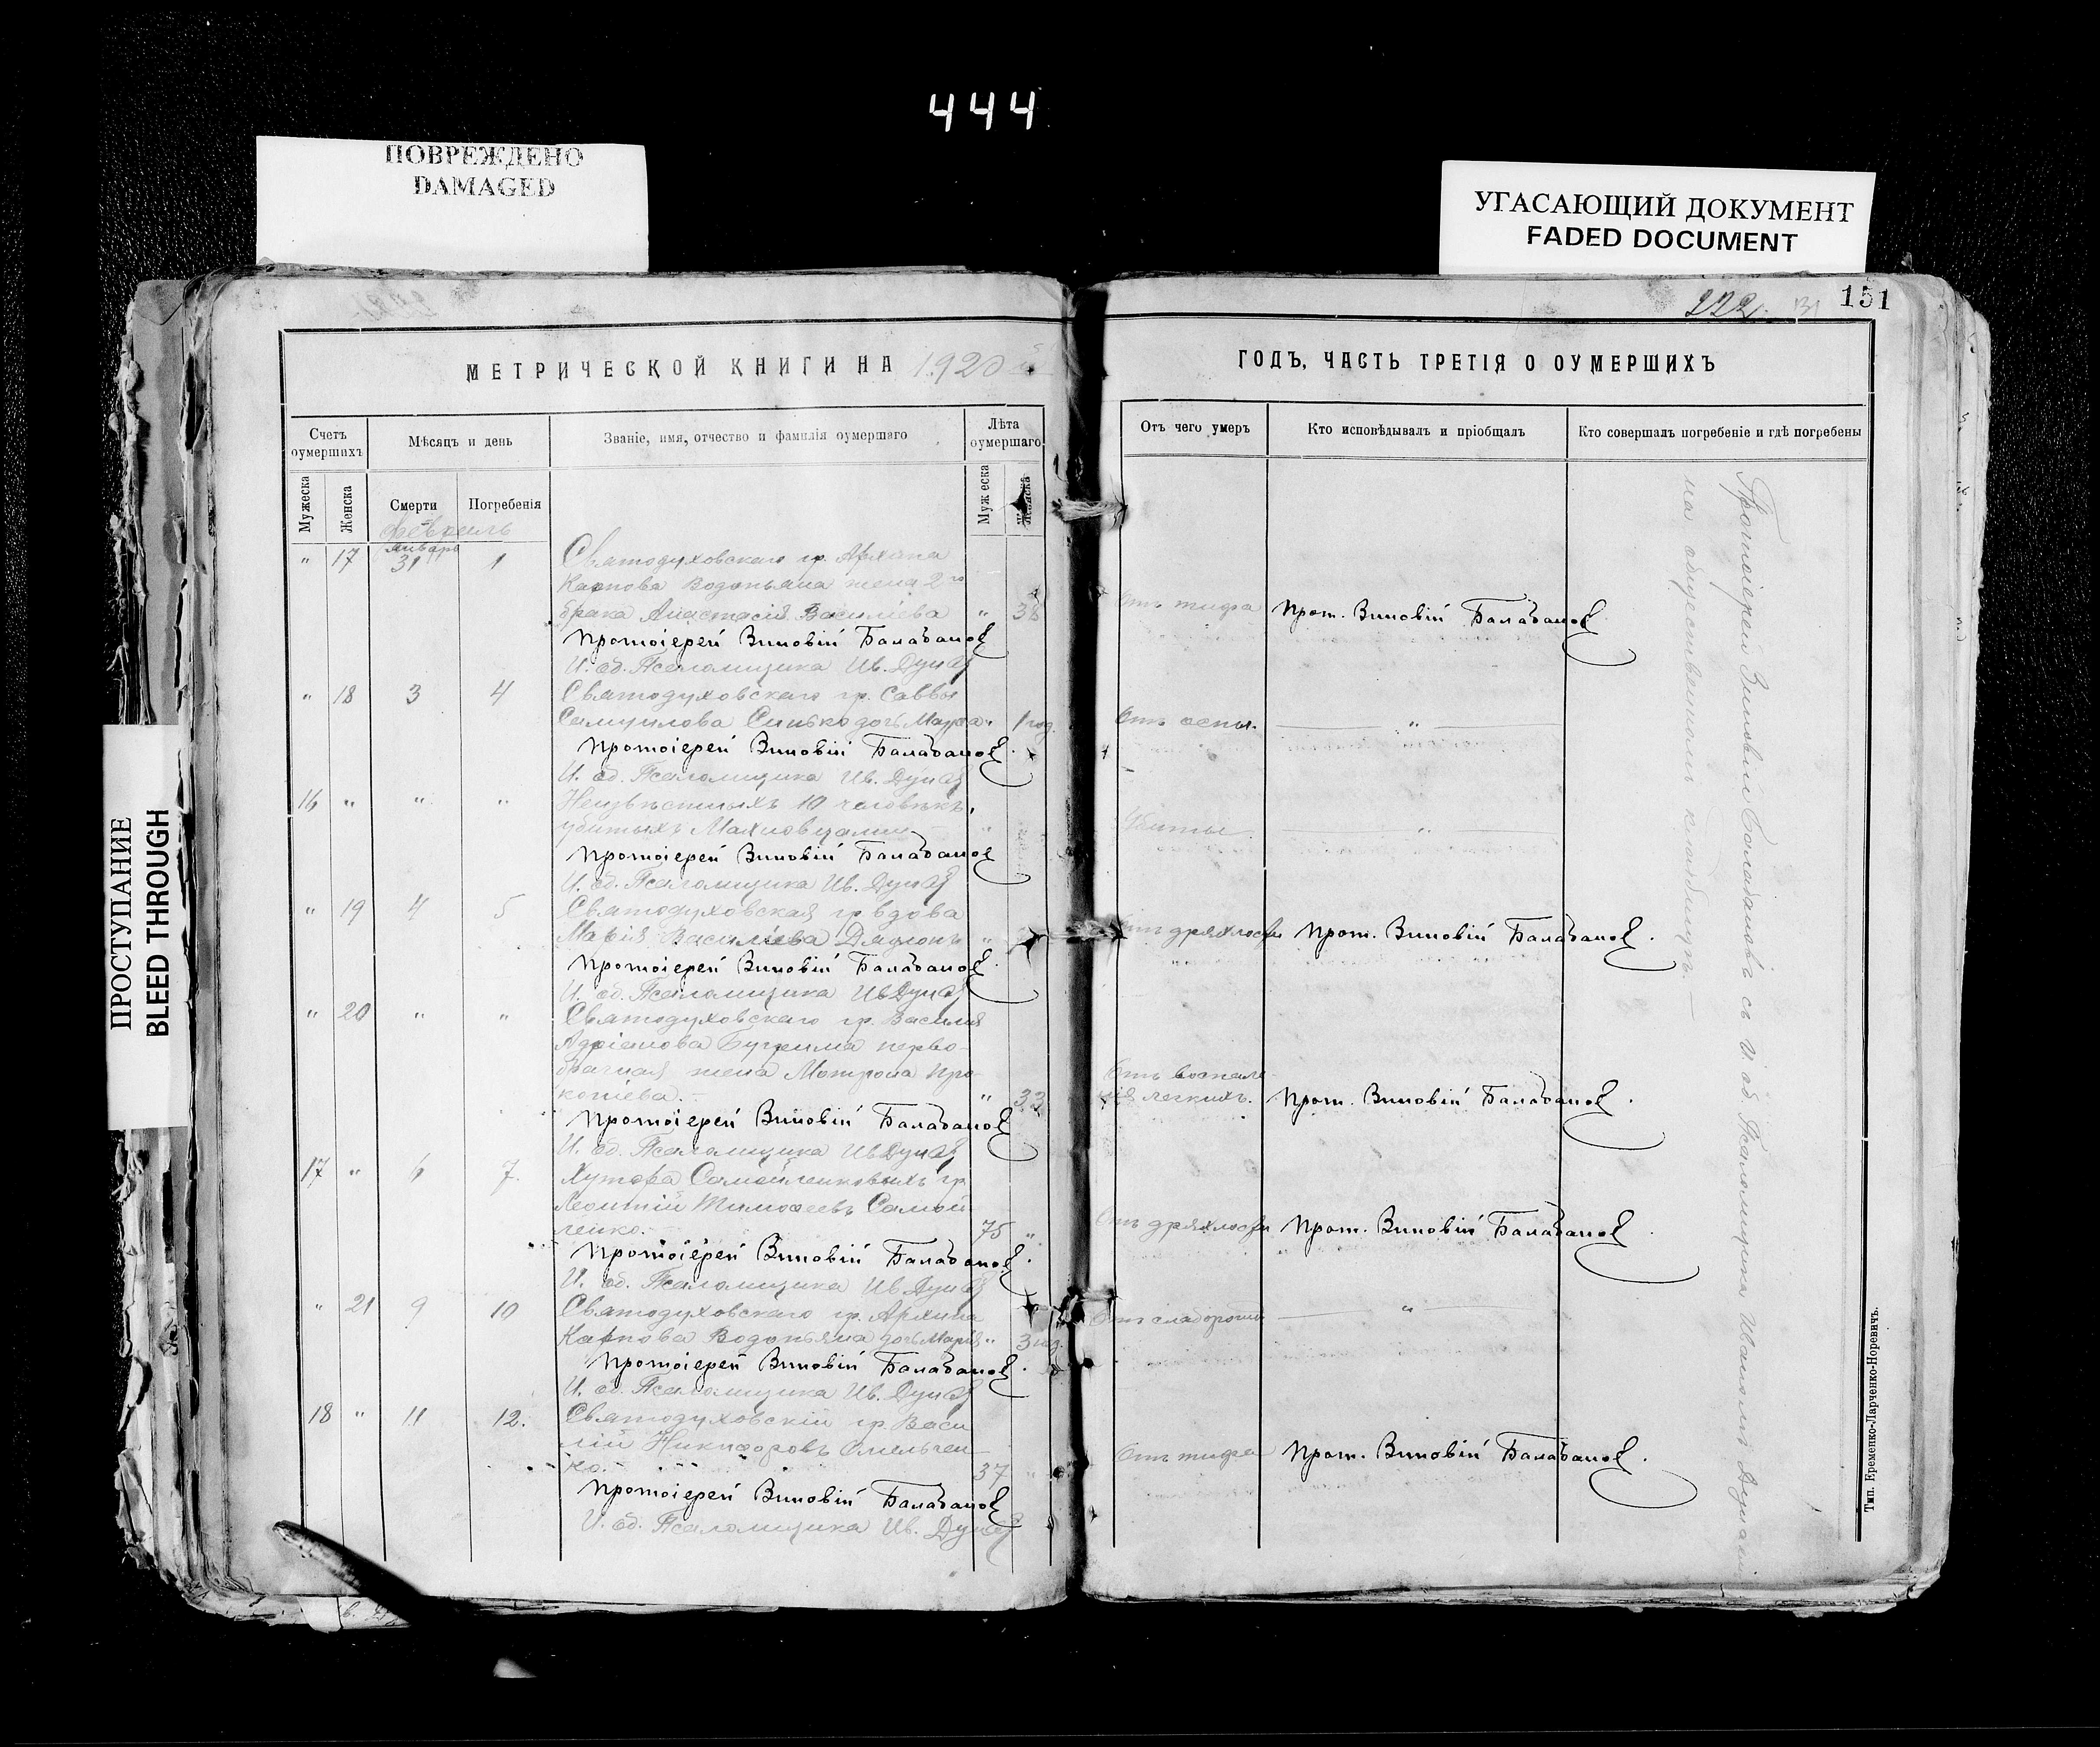 444
ПОВРЕЖДЕНО
DAMAGED
УГАСАЮЩИЙ ДОКУМЕНТ
FADED DOCUMENT
ПРОСТУПАНИЕ
BLEED THROUGH
222.
151
МЕТРИЧЕСКОЙ КНИГИ НА 1920
ГОДЪ, ЧАСТЬ ТРЕТІЯ О ОУМЕРШИХЪ
Счетъ оумершихъ
Мѣсяцъ и день
Званіе, имя, отчество и фамилія оумершаго
Лѣта оумершаго
Отъ чего умеръ
Кто исповѣдывалъ и пріобщалъ
Кто совершалъ погребеніе и гдѣ погребены
Мужеска
Женска
Смерти
Погребенія
Мужеска
Женска
Февраль
Январь
" 17 31 1 Святодуховскаго гр. Архипа
Карпова Водопьяна жена 2го
брака Анастасія Василіева " 38 Отъ тифа Прот. Зиновій Балабанов
Протоіерей Зиновій Балабанов
И. об. Псаломщика Ив. Дунай
" 18 3 4 Святодуховскаго гр. Саввы
Самуилова Синько дочь " 1 год. Отъ оспы. "
Протоіерей Зиновій Балабанов
И. об. Псаломщика Ив. Дунай
16 " " " Неизвѣстныхъ 10 человѣкъ,
убитыхъ Махновцами " Убиты. "
Протоіерей Зиновій Балабанов
И. об. Псаломщика Ив. Дунай
" 19 4 5 Святодуховская гр. вдова
Марія Василіева " Отъ дряхлости Прот. Зиновій Балабанов.
Протоіерей Зиновій Балабанов
И. об. Псаломщика Ив. Дунай
" 20 " " Святодуховскаго гр. Василія
Адріанова Бугрима перво-
брачная жена Матрона Про-
копіева. " 33 Отъ воспале-
нія легкихъ. Прот. Зиновій Балабанов.
Протоіерей Зиновій Балабанов
И. об. Псаломщика Ив. Дунай
17 " 6 7. Хутора Самойленковыхъ гр.
Леонтій Тимофеевъ Самой-
ленко. 75 " Отъ дряхлости Прот. Зиновій Балабанов.
Протоіерей Зиновій Балабанов.
И. об. Псаломщика Ив. Дунай
" 21 9 10 Святодуховскаго гр. Архипа
Карпова Водопьяна дочь Марія " 3 "
Протоіерей Зиновій Балабанов.
И. об. Псаломщика Ив. Дунай
18 " 11 12. Святодуховскій гр. Васи-
лій Никифоровъ Омельчен-
ко. 37 " Отъ тифа Прот. Зиновій Балабанов.
Протоіерей Зиновій Балабанов
И. об. Псаломщика Ив. Дунай
Протоіерей Зиновій Балабановъ съ и. об. Псаломщика Иваномъ Дунаемъ
на общественномъ кладбищѣ.
Тип. Еременко-Ларченко-Норевичъ.